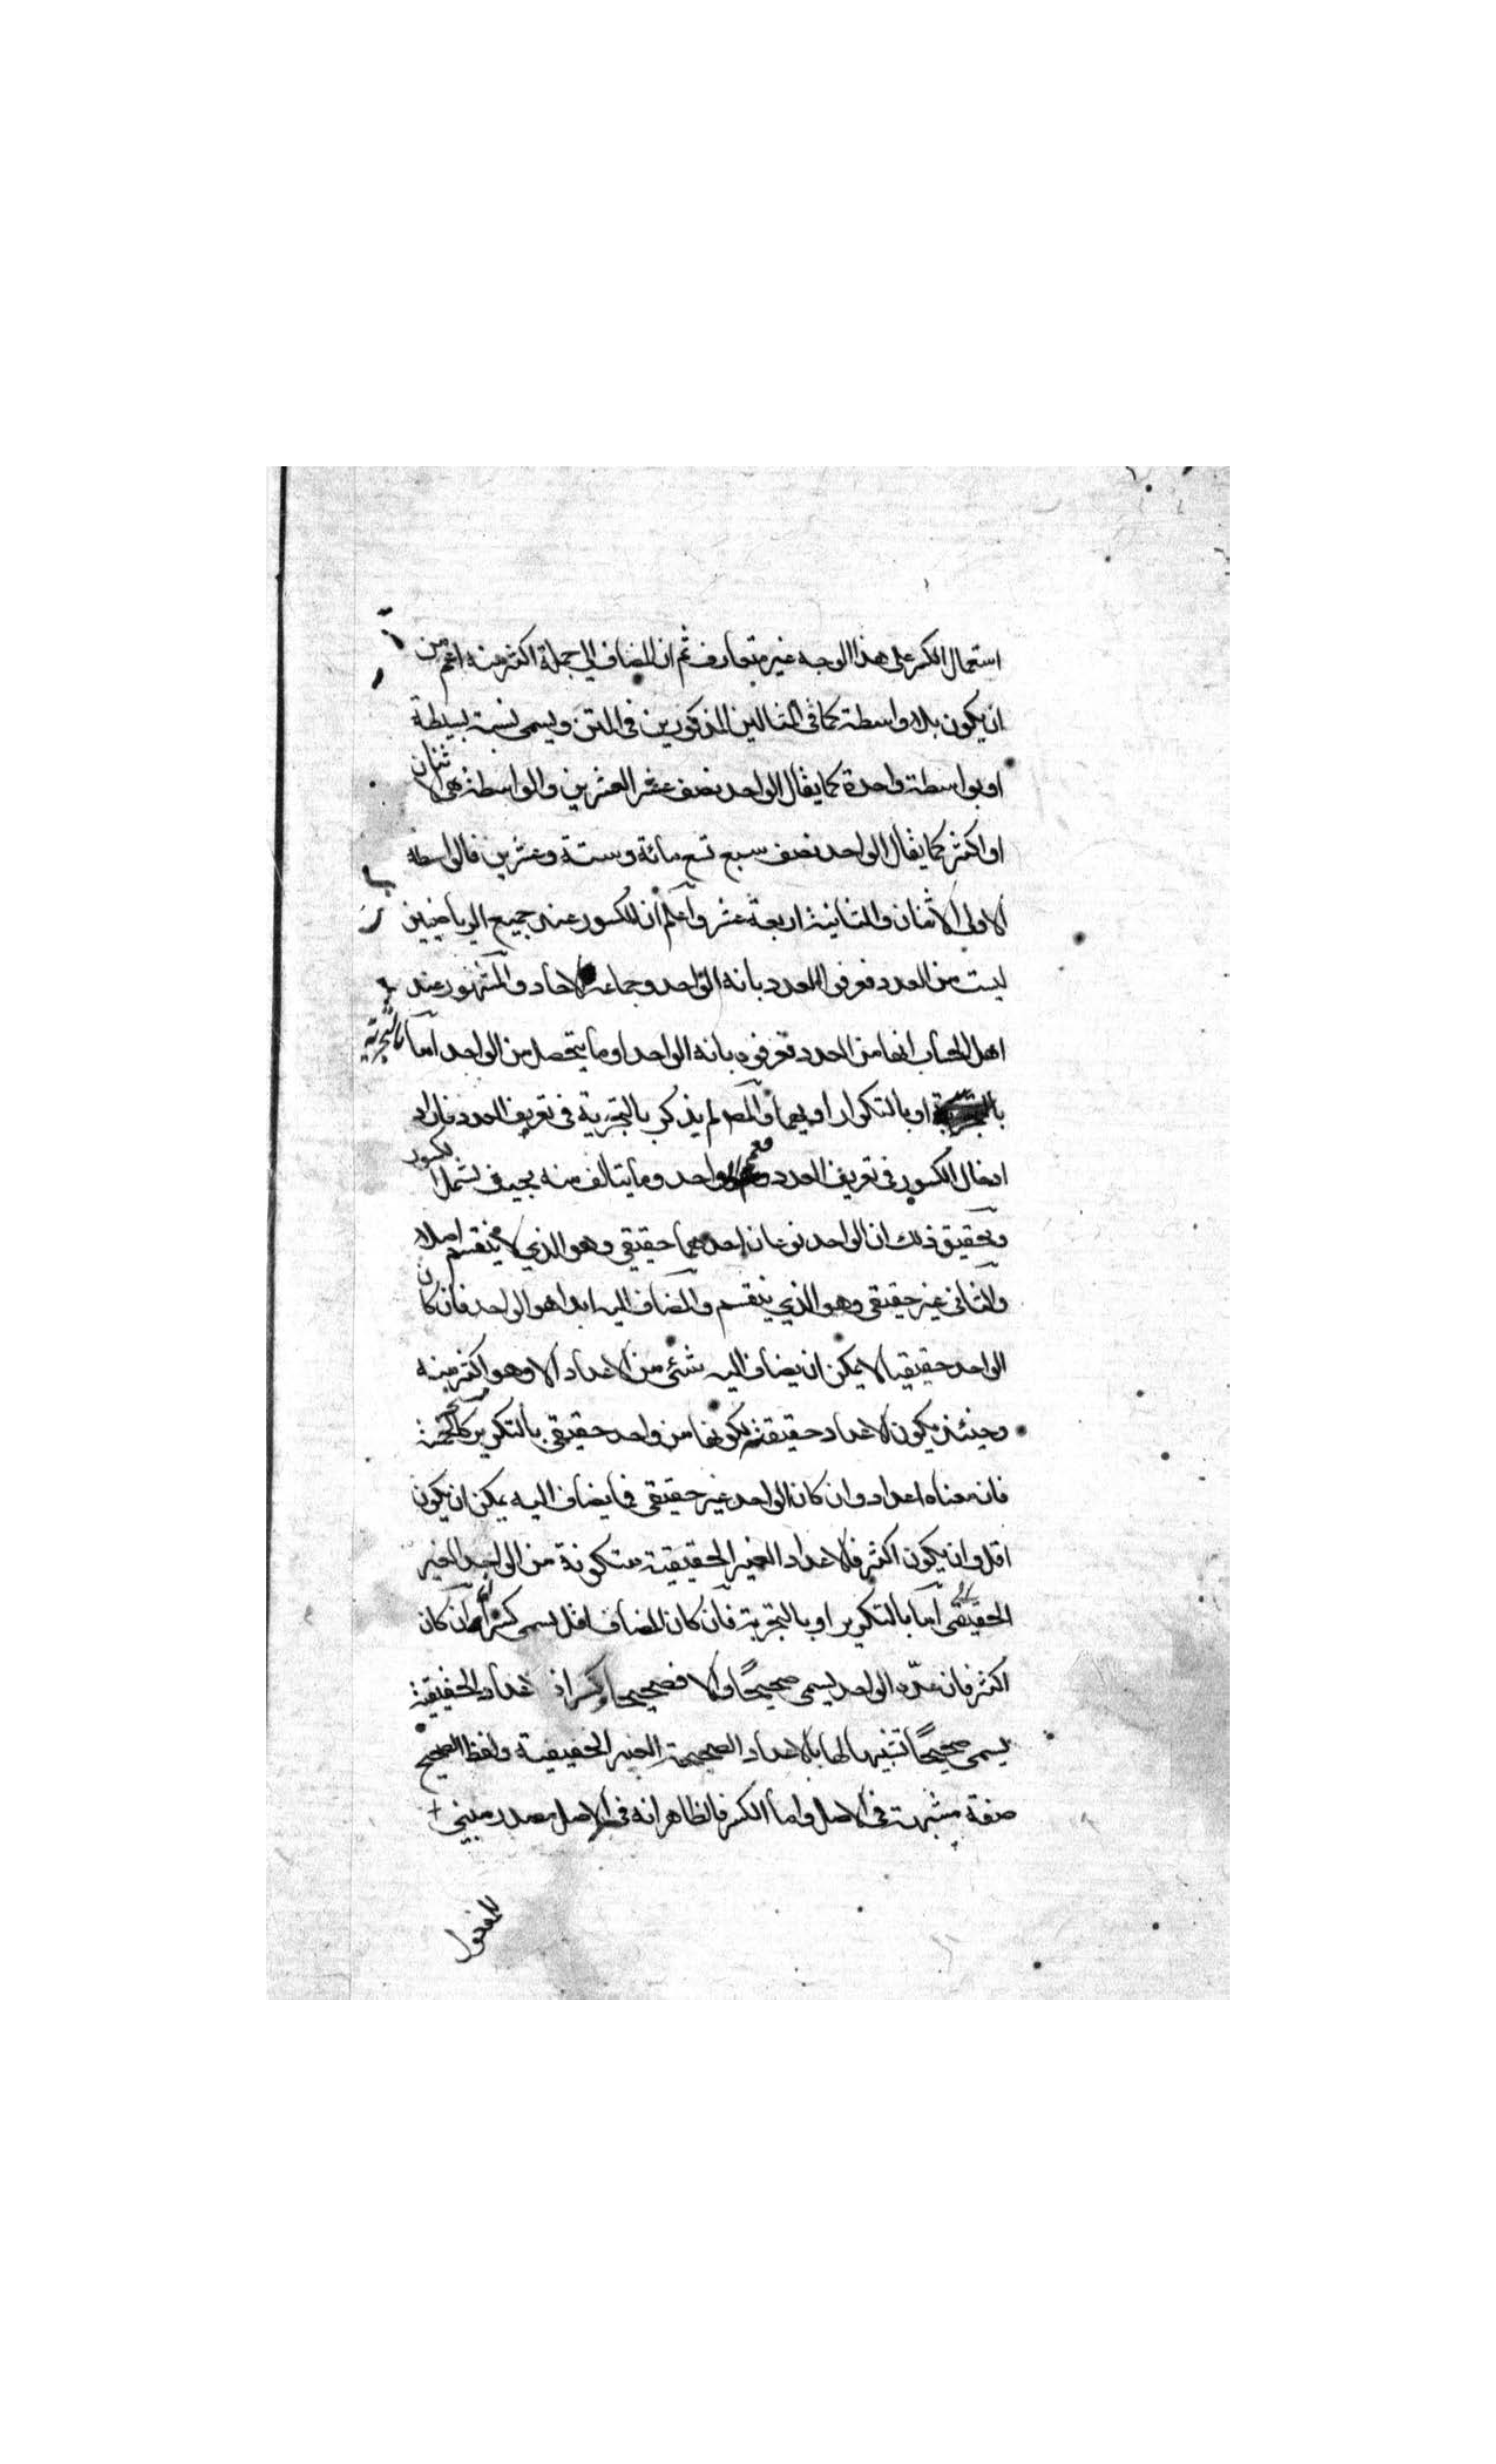 استعمال الكسر على هذا الوجه غير متعارف ثم ان المضاف الى جملة اكثر منه اعم من
ان يكون بلا واسطة كما في المثالين المذكورين في المتن ويسمى نسبة بسيطة
او بواسطة واحدة كما يقال الواحد نصف عشر العشرين والواسطة هي الاثنان
او اكثر كما يقال الواحد نصف سبع تسع مائة وستة وعشرين فالواسطة
الاولى الاثنان والثانية اربعة عشر واعلم ان الكسور عند جميع الرياضيين
ليست من العدد فعرفوا العدد بانه الواحد وجماعة الاحاد والمشهور عند
اهل الحساب انها من العدد فعرفوه بانه الواحد او ما يتحصل من الواحد اما بالتجزية
او بالتكرار او بهما والمص لم يذكر بالتجزية في تعريف العدد فاراد
ادخال الكسور في تعريف العدد فعمم الواحد وما يتالف منه بحيث يشمل الكسور
وتحقيق ذلك ان الواحد نوعان احدهما حقيقي وهو الذي لا ينقسم اصلا
والثاني غير حقيقي وهو الذي ينقسم والمضاف اليه ابدا هو الواحد فان كان
الواحد حقيقيا لا يمكن ان يضاف اليه شئ من الاعداد الا وهو اكثر منه
وحينئذ يكون الاعداد حقيقة لكونها من واحد حقيقي بالتكرير كالخمسة
فان معناه اعداد وان كان الواحد غير حقيقي فما يضاف اليه يمكن ان يكون
اقل وان يكون اكثر فالاعداد الغير الحقيقية متكونة من الواحد الغير
الحقيقي اما بالتكرير او بالتجزية فان كان المضاف اقل يسمى كسرا وان كان
اكثر فان عدّه الواحد يسمى صحيحًا والا فصحيحا وكسرا اعداد الحقيقية
يسمى صحيحًا تشبيها لها بالاعداد الصحيحة الغير الحقيقية ولفظ الصحيح
صفة مشبهة في الاصل واما الكسر فالظاهر انه في الاصل مصدر مبني
للمفعول